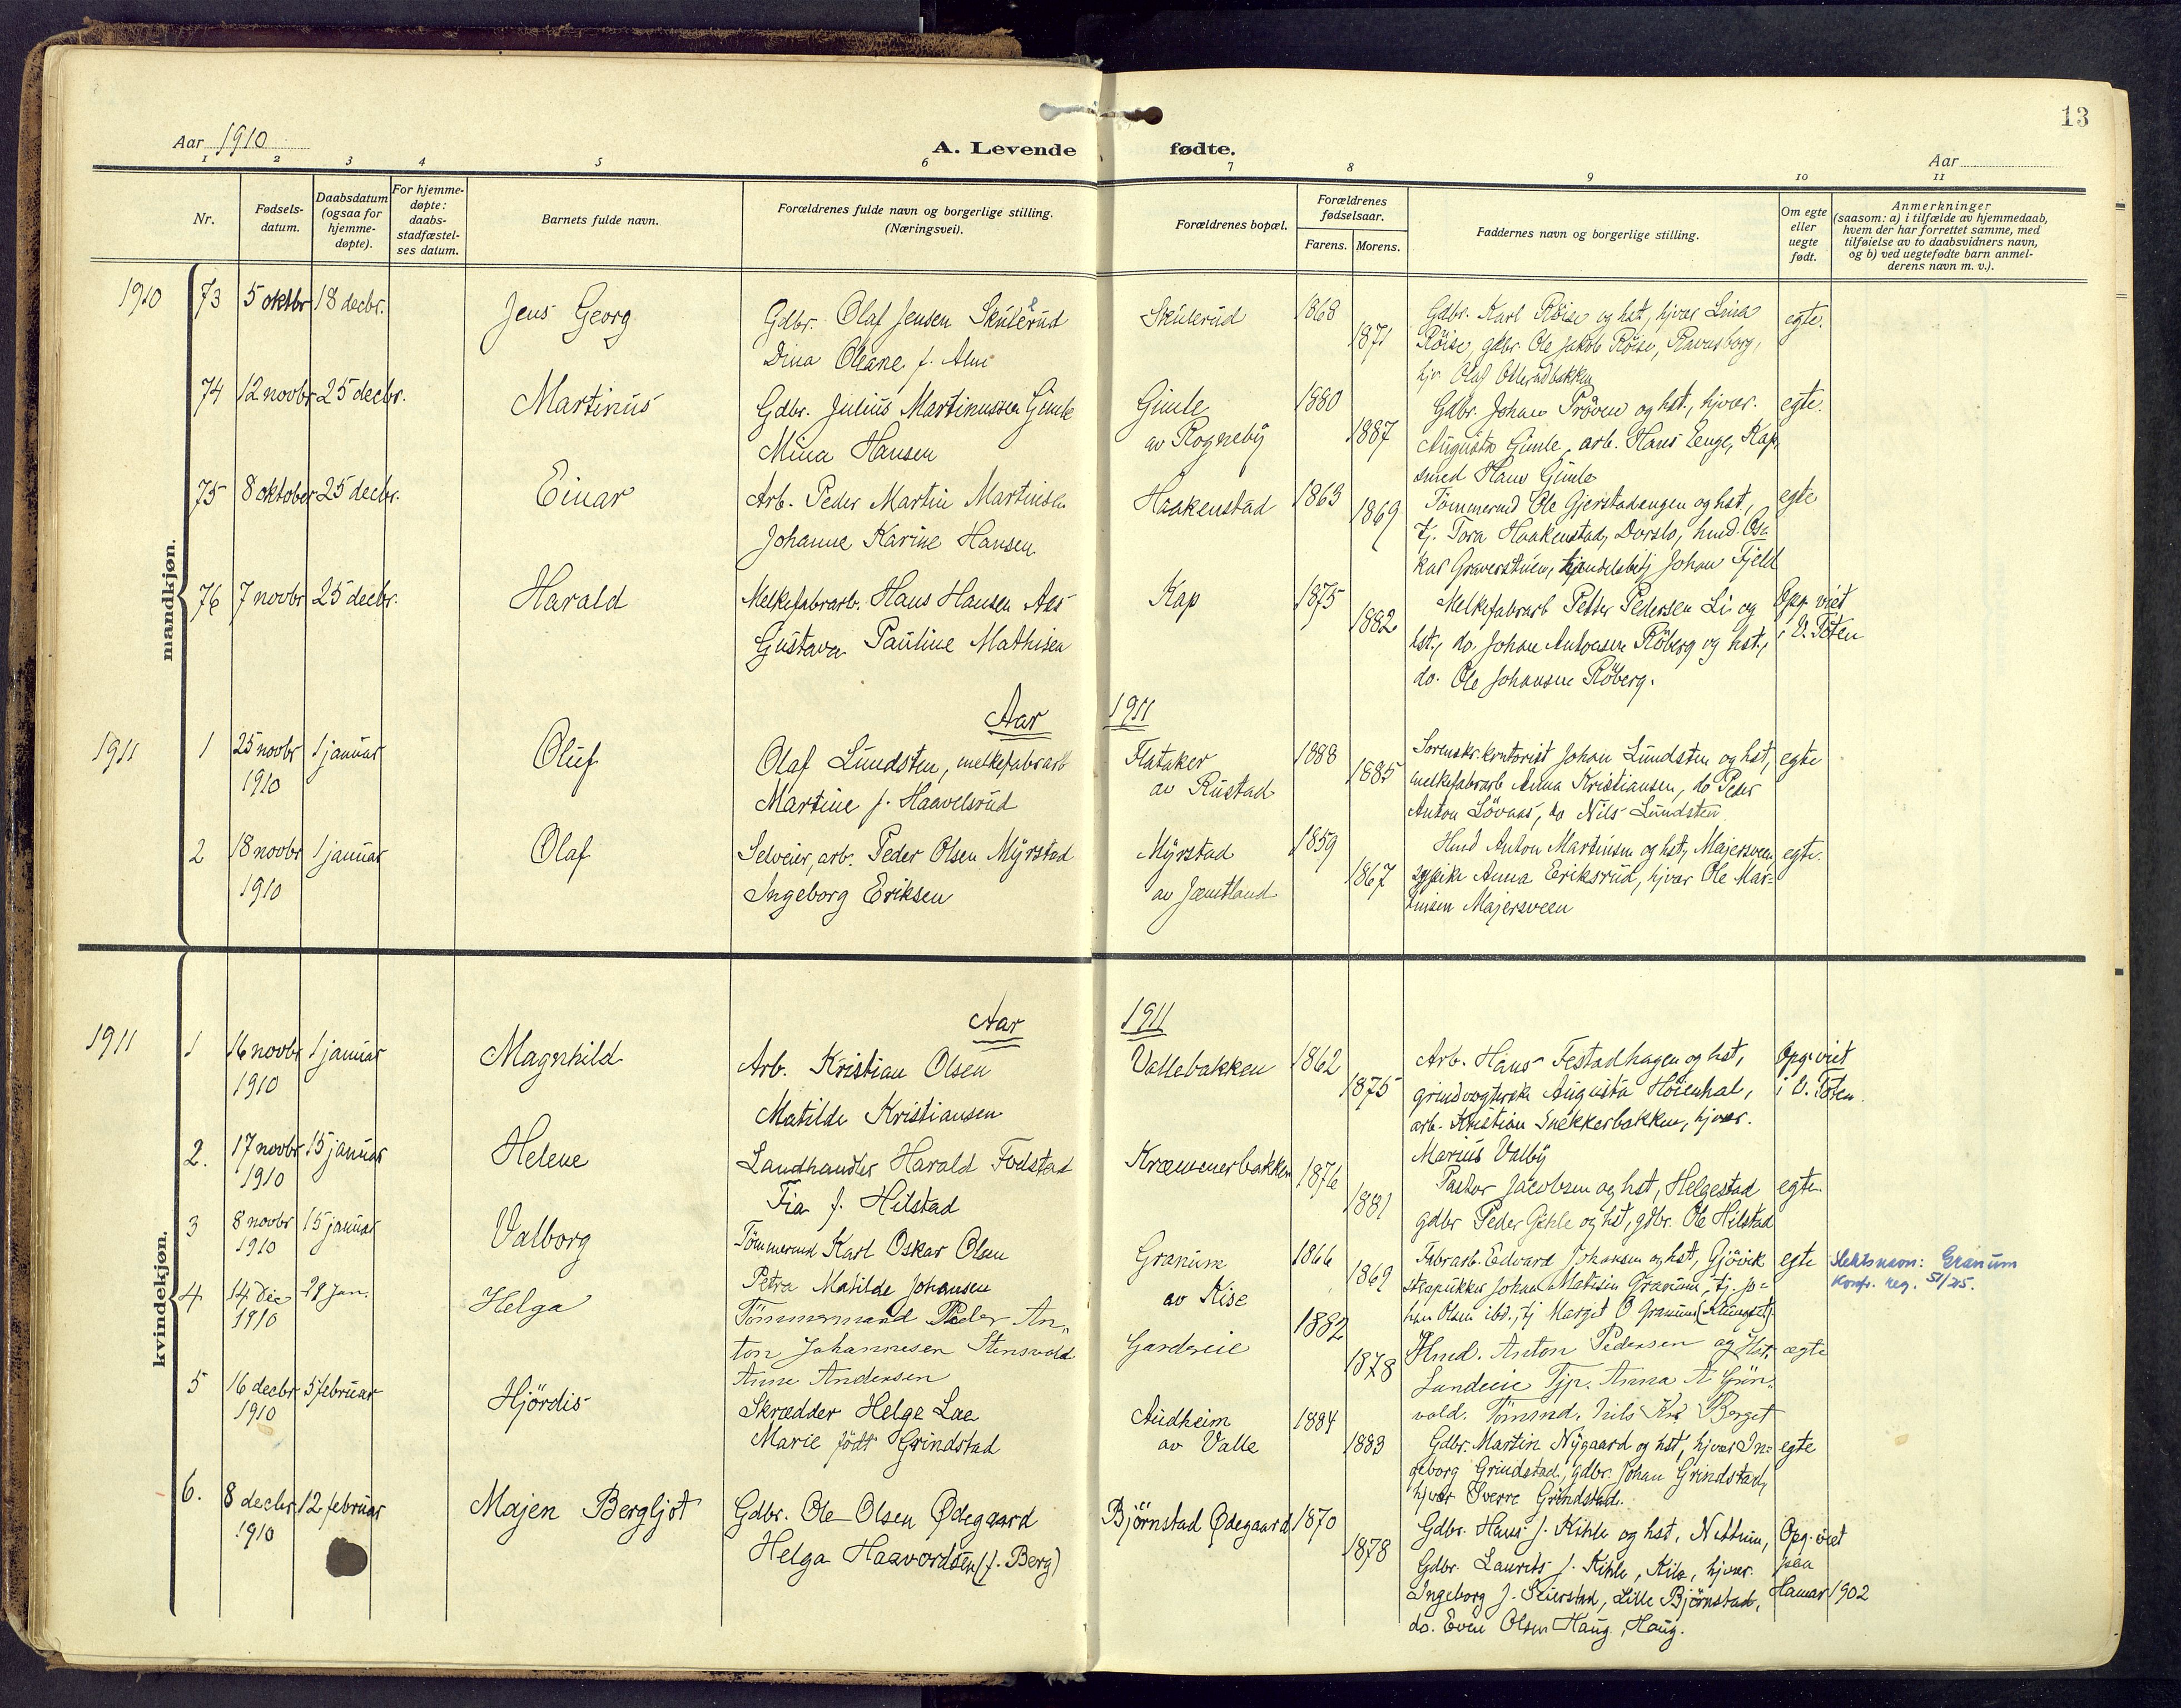 13
Aar 1910
A. Levende fødte.
Aar
1 2 3 4 5 6 7 8 9 10 11
Nr.
Fødsels-
datum.
Daabsdatum
(ogsaa for
hjemme-
døpte).
For hjemme-
døpte:
daabs-
stadfæstel-
ses datum.
Barnets fulde navn.
Forældrenes fulde navn og borgerlige stilling.
(Næringsvei).
Forældrenes bopæl.
Forældrenes
fødselsaar.
Farens. Morens.
Faddernes navn og borgerlige stilling.
Om egte
eller
uegte
født.
Anmerkninger
(saasom: a) i tilfælde av hjemmedaab,
hvem der har forrettet samme, med
tilføielse av to daabsvidners navn,
og b) ved uegtefødte barn anmel-
derens navn m. v.).
mandkjøn.
1910 73 5 oktbr 18 decbr. Jens Georg Gdbr. Olaf Jensen Skulerud Skulerud 1868 Gdbr. Karl Röise og hst, hjvær Lina egte.
Dina Oleane f. Alm 1871 Röise, gdbr. Ole Jakob Röise, Ravnsborg,
hjv. Olaf Ollerudbakken
74 12 novbr 25 decbr. Martinus Gdbr. Julius Martinussen Gimle Gimle 1880 Gdbr. Johan Pröven og hst., hjvær. egte.
Mina Hansen av Rogneby 1887 Augusta Gimle, arb. Hans Enge, Kap,
smed Hans Gimle
75 8 oktober 25 decbr. Einar Arb. Peder Martin Martinsen Haakenstad 1863 Tömmermd Ole Gjerstadengen og hst, egte
Johanne Karine Hansen 1869 tj. Tora Haakenstad, Dorslo, hmd. Os-
kar Graverstuen, Johan Fjeld
76 7 novbr 25 decbr. Harald Melkefabrarb. Hans Hansen Aas Kap 1875 Melkefabrarb Petter Pedersen Li og Opg. viet
Gustava Pauline Mathisen 1882 hst., do. Johan Antonsen Röberg og hst., i V. Toten
do. Ole Johansen Röberg.
Aar 1911
1911 1 25 novbr 1 januar Oluf Olaf Lundsten, melkefabrarb Flataker 1888 Sorenskr.kontorist Johan Lundsten og hst, egte
1910 Martine f. Haavelsrud av Rustad 1885 melkefabrarb Anna Kristiansen, do Peder
Anton Lövaas, do Nils Lundsten
2 18 novbr 1 januar Olaf Selveier, arb. Peder Olsen Myrstad Myrstad 1859 Hmd Anton Martinsen og hst, Majersveen, egte.
1910 Ingeborg Eriksen av Jæmtland 1867 sypike Anna Eriksrud, hjvær Ole Mar-
tinsen Majersveen
kvindekjøn.
Aar 1911
1911 1 16 novbr 1 januar Magnhild Arb. Kristian Olsen Vallebakken 1862 Arb. Hans Festadhagen og hst, Opg. viet
1910 Matilde Kristiansen 1875 grindvogterske Augusta Höienhal, i V. Toten.
arb. Kristian Snekkerbakken, hjvær.
Marius Valby
2. 17 novbr 15 januar Helene Landhandler Harald Fodstad Kræmmerbakken 1876 Pastor Jacobsen og hst, Helgestad egte.
1910 Fia f. Hilstad 1881 gdbr Peder Gihle og hst, gdbr. Ole Hilstad
3 8 novbr 15 januar Valborg Tömmermd Karl Oskar Olsen Granum 1866 Fabrarb. Edvard Johansen og hst, Gjövik egte Slektsnavn: Granum
1910 Petra Matilde Johansen av Kise 1869 Johan Matisen Granum, tj. Jo- Konf. reg. 51/25.
han Olsen ibd., tj Margit O Granum
4 14 Dec 29 Jan. Helga Tömmermand Peder An- Gardereie 1882 Hmd. Anton Pedersen og Hst. ægte
1910 ton Johannesen Stensvold 1878 Lundeie Tjp. Anna A Grön-
Anne Andersen vold. Tömmd. Nils Kr. Berget
5 16 decbr 5 februar Hjördis Skrædder Helge Lae Audheim 1884 Gdbr. Martin Nygaard og hst, hjvær In- egte
1910 Marie födt Grindstad av Valle 1883 geborg Grindstad, gdbr. Johan Grindstad,
hjvær Sverre Grindstad.
6. 8 decbr 12 februar Majen Bergljot Gdbr. Ole Olsen Ødegaard Björnstad Ødegaard 1870 Gdbr. Hans J. Kihle og hst. Nettum, Opg. viet
1910 Helga Haavordsen (f. Berg) 1878 Gdbr. Laurits J. Kihle, Kile, hjvær. paa
Ingeborg J. Seierstad, Lille Björnstad, Hamar 1902
do. Even Olsen Haug, Haug.